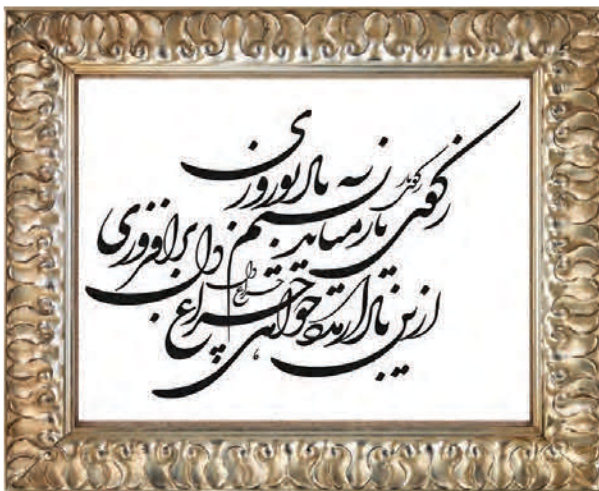 ز کوی یار میآید نسیم باد نوروزی
ازین باد ار مدد خواهی چراغ دل برافروزی